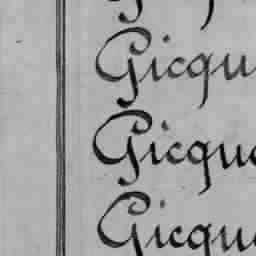 Gicqu
Gicque
Gicque